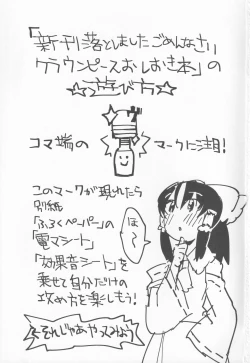 「新刊落としましたごめんなさい
クラウンピースおしおき本」の
☆☆遊び方☆☆
コマ端の
マークに注目!
このマークが現れたら
別紙
「ふろくペーパー」の
「電マシート」
「効果音シート」を
乗せて自分だけの
攻め方を楽しもう!
ほへ〜
〜それじゃあやってみよう